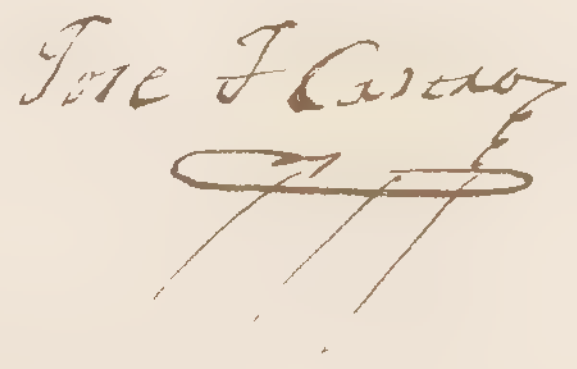 Jose F Casado